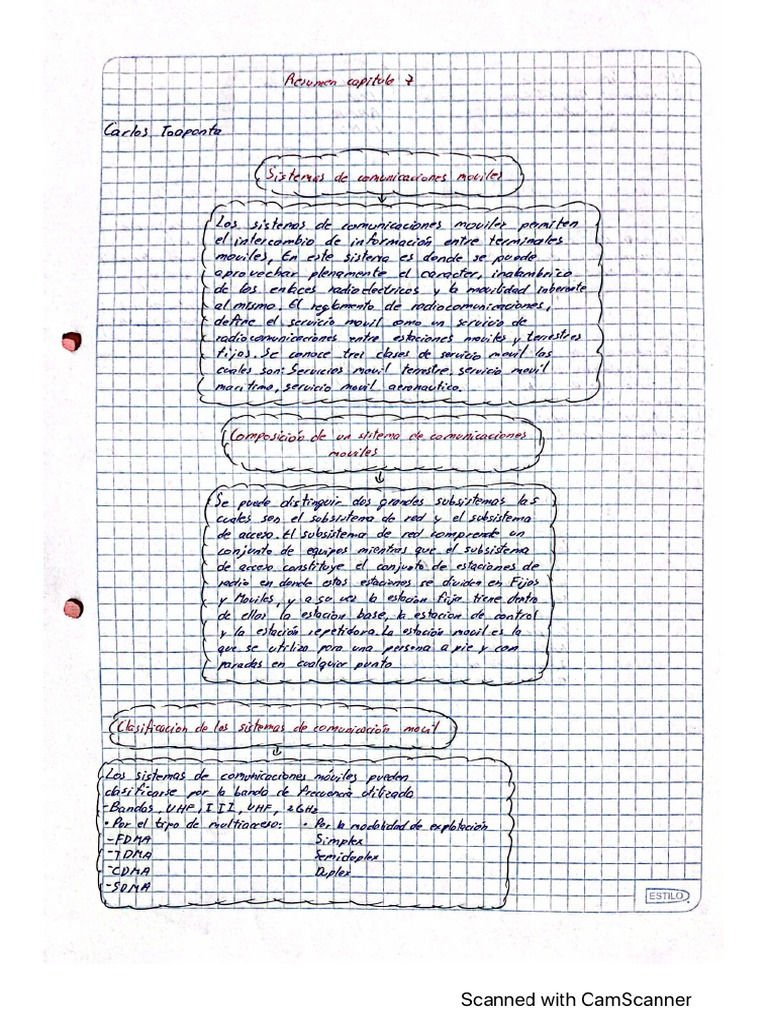 Resumen capitulo 7
Carlos Toapanta
Sistemas de comunicaciones moviles
Los sistemas de comunicaciones moviles permiten
el intercambio de información entre terminales
moviles, En este sistema es donde se puede
aprovechar plenamente el caracter, inalambrico
de los enlaces radioelectricos y la movilidad inherente
al mismo. El reglamento de radiocomunicaciones,
define el servicio movil como un servicio de
radiocomunicaciones entre estaciones moviles y terrestres
fijos. Se conoce tres clases de servicio movil las
cuales son: Servicios movil terrestre, servicio movil
maritimo, servicio movil aeronautico.
Composición de un sistema de comunicaciones
moviles
Se puede distinguir dos grandes subsistemas las
cuales son el subsistema de red y el subsistema
de acceso. El subsistema de red comprende un
conjunto de equipos mientras que el subsistema
de acceso constituye el conjunto de estaciones de
radio en donde estas estaciones se dividen en Fijos
y Moviles, y a su vez la estacion fija tiene dentro
de ellas la estacion base, la estacion de control
y la estación repetidora. La estación movil es la
que se utiliza para una persona a pie y con
paradas en cualquier punto
Clasificacion de los sistemas de comunicación movil
Los sistemas de comunicaciones móviles pueden
clasificarse por la banda de frecuencia utilizada
-Bandas, VHF, I II, UHF, 2GHz
• Por el tipo de multiacceso: • Por la modalidad de explotación
-FDMA Simplex
-TDMA Semiduplex
-CDMA Duplex
-SDMA
ESTILO
Scanned with CamScanner